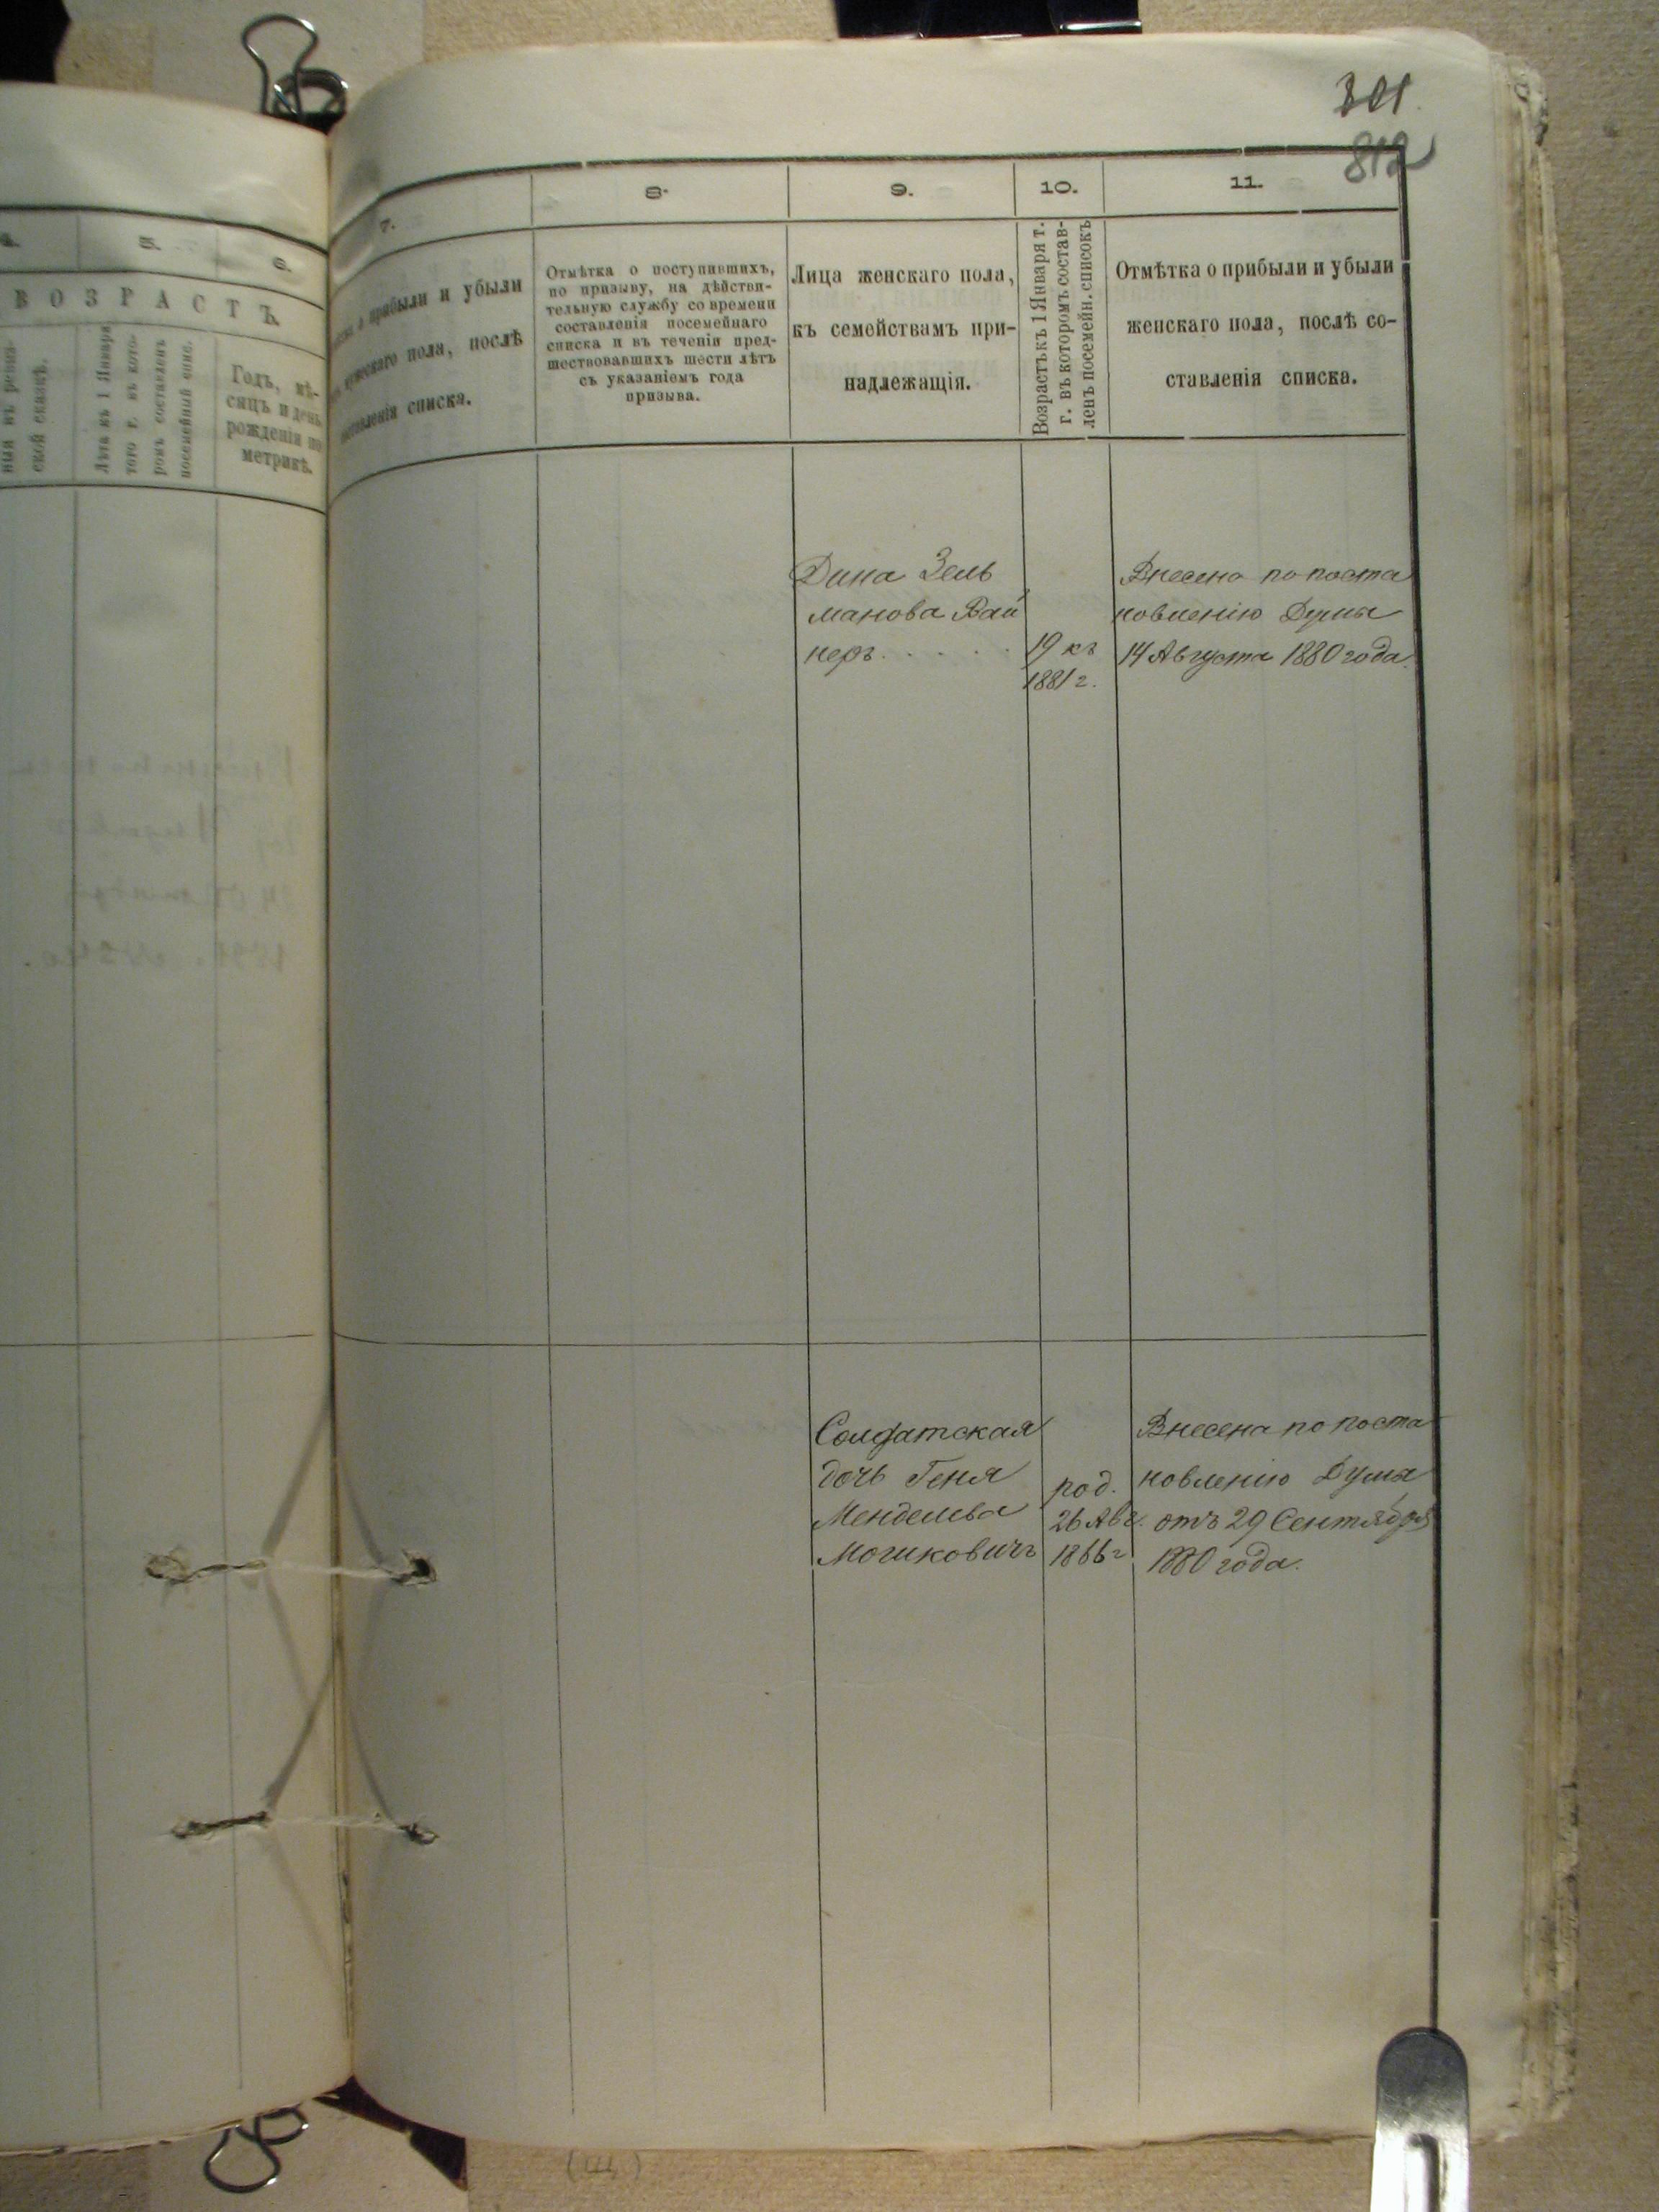 301.
812
4.
5.
6.
ВОЗРАСТЪ.
ской сказкѣ.
Лѣта къ 1 Января
того г. въ кото-
ромъ составленъ
посемейный спис.
Годъ, мѣ-
сяцъ и день
рожденія по
метрикѣ.
7.
о прибыли и убыли
мужескаго пола, послѣ
составленія списка.
8.
Отмѣтка о поступившихъ,
по призыву, на дѣйстви-
тельную службу со времени
составленія посемейнаго
списка и въ теченіи пред-
шествовавшихъ шести лѣтъ
съ указаніемъ года
призыва.
9.
Лица женскаго пола,
къ семействамъ при-
надлежащія.
10.
Возрастъ къ 1 Января т.
г. въ которомъ состав-
ленъ посемейн. списокъ
11.
Отмѣтка о прибыли и убыли
женскаго пола, послѣ со-
ставленія списка.
Дина Зель
манова Вай
неръ . . . . . .
19 къ
1881 г.
Внесена по поста
новленію Думы
14 Августа 1880 года.
Солдатская
дочь Геня
Менделева
Мошковичъ
род.
26 Авг.
1866 г
Внесена по поста
новленію Думы
отъ 29 Сентября
1880 года.